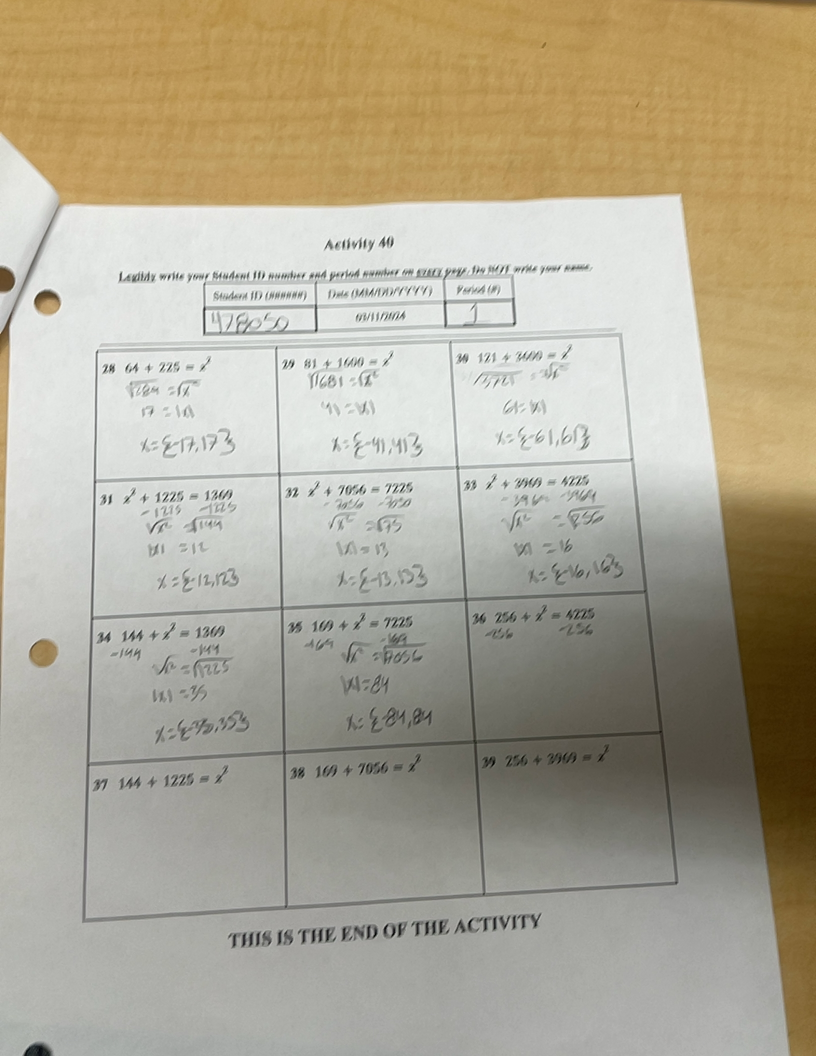 Activity 40
Legibly write your Student ID number and period number on every page. Do NOT write your name.
Student ID (######) Date (MM/DD/YYYY) Period (#)
478050 03/11/2024 1
28 64 + 225 = x²
√289 = √x²
17 = |x|
x = {-17, 17}
29 81 + 1600 = x²
√1681 = √x²
41 = |x|
x = {-41, 41}
30 121 + 3600 = x²
√3721 = √x²
61 = |x|
x = {-61, 61}
31 x² + 1225 = 1369
-1225 -1225
√x² = √144
|x| = 12
x = {-12, 12}
32 x² + 7056 = 7225
-7056 -7056
√x² =
|x| = 13
x = {-13, 13}
33 x² + 3969 = 4225
-3969 -3969
√x² = √256
|x| = 16
x = {-16, 16}
34 144 + x² = 1369
-144 -144
√x² = √1225
|x| = 35
x = {-35, 35}
35 169 + x² = 7225
-169 -169
√x² = √7056
|x| = 84
x = {-84, 84
36 256 + x² = 4225
-256 -256
37 144 + 1225 = x²
38 169 + 7056 = x²
39 256 + 3969 = x²
THIS IS THE END OF THE ACTIVITY